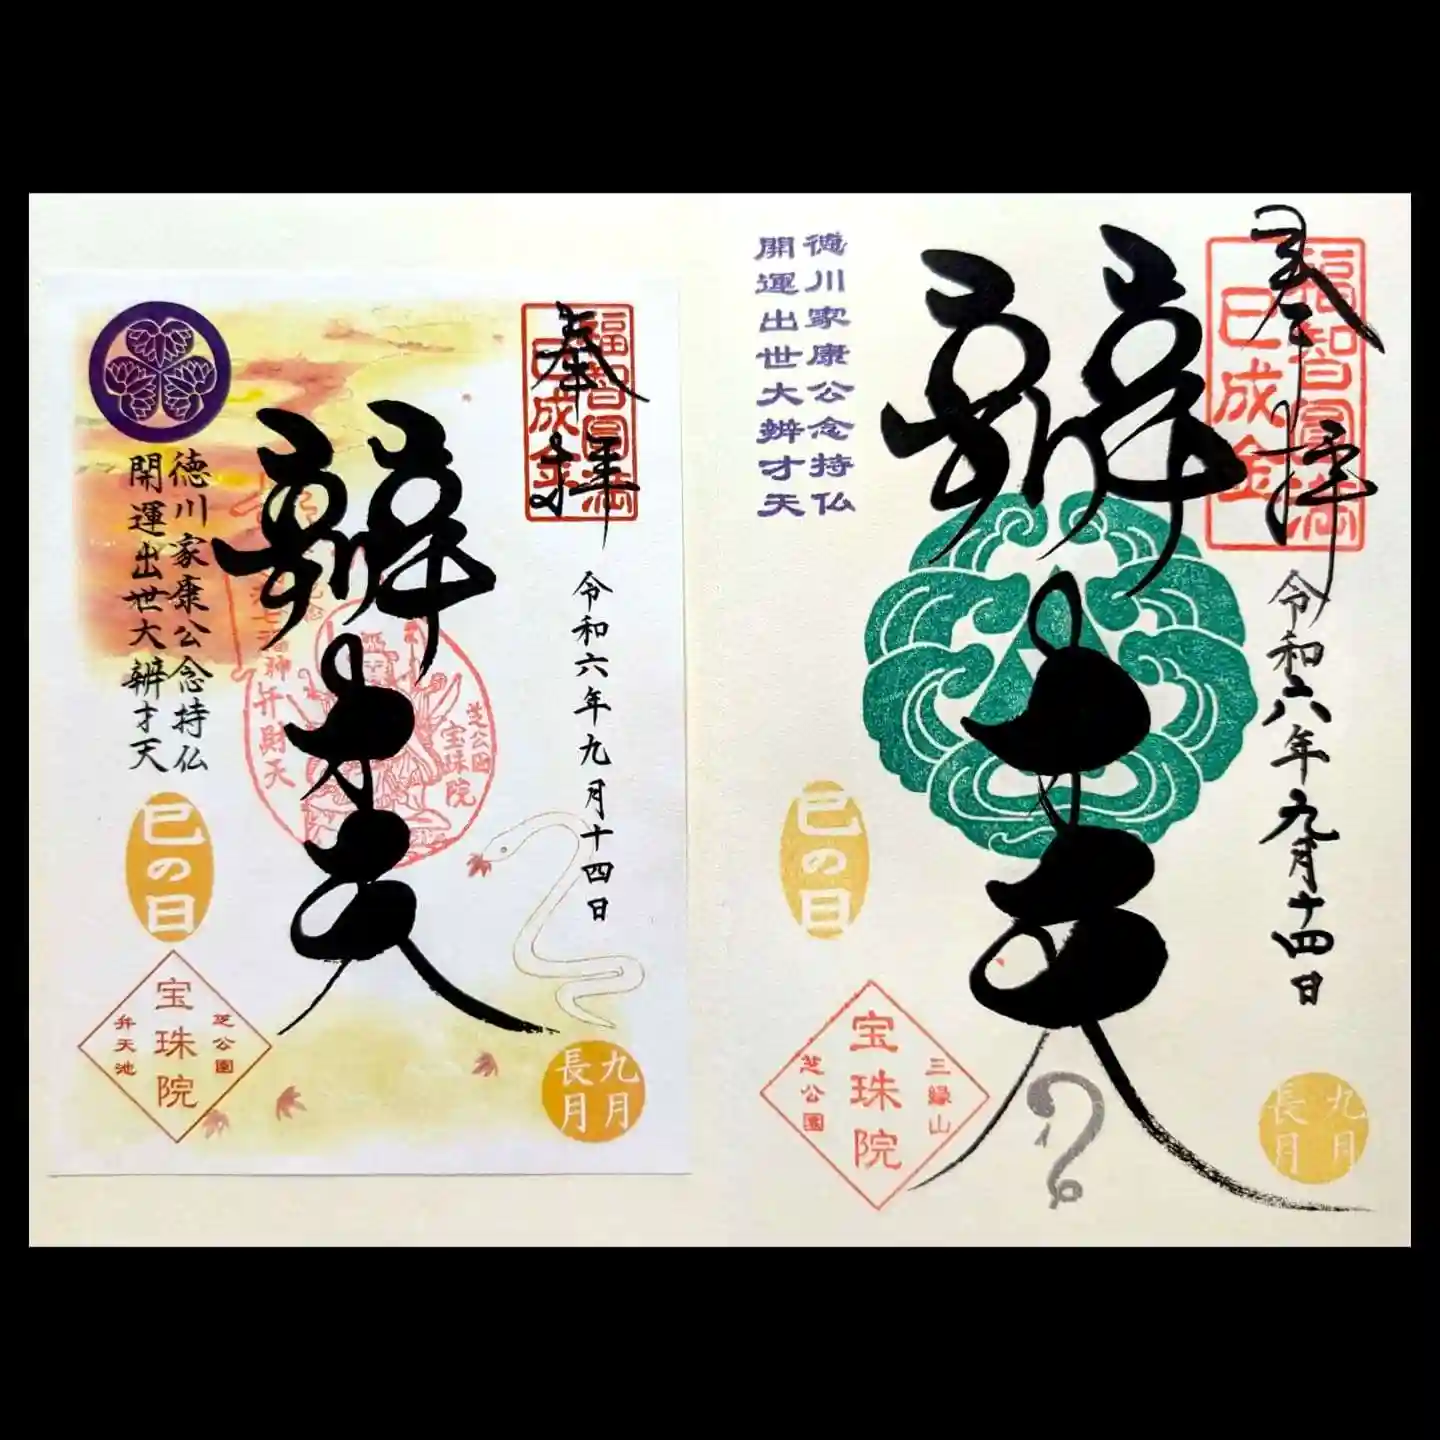 奉拝
福智圓満
巳成金
令和六年九月十四日
辨才天
徳川家康公念持仏
開運出世大辨才天
弁財天
芝公園
宝珠院
巳の日
芝公園
宝珠院
弁天池
九月
長月
奉拝
福智圓満
巳成金
令和六年九月十四日
辨才天
徳川家康公念持仏
開運出世大辨才天
巳の日
三縁山
宝珠院
芝公園
九月
長月